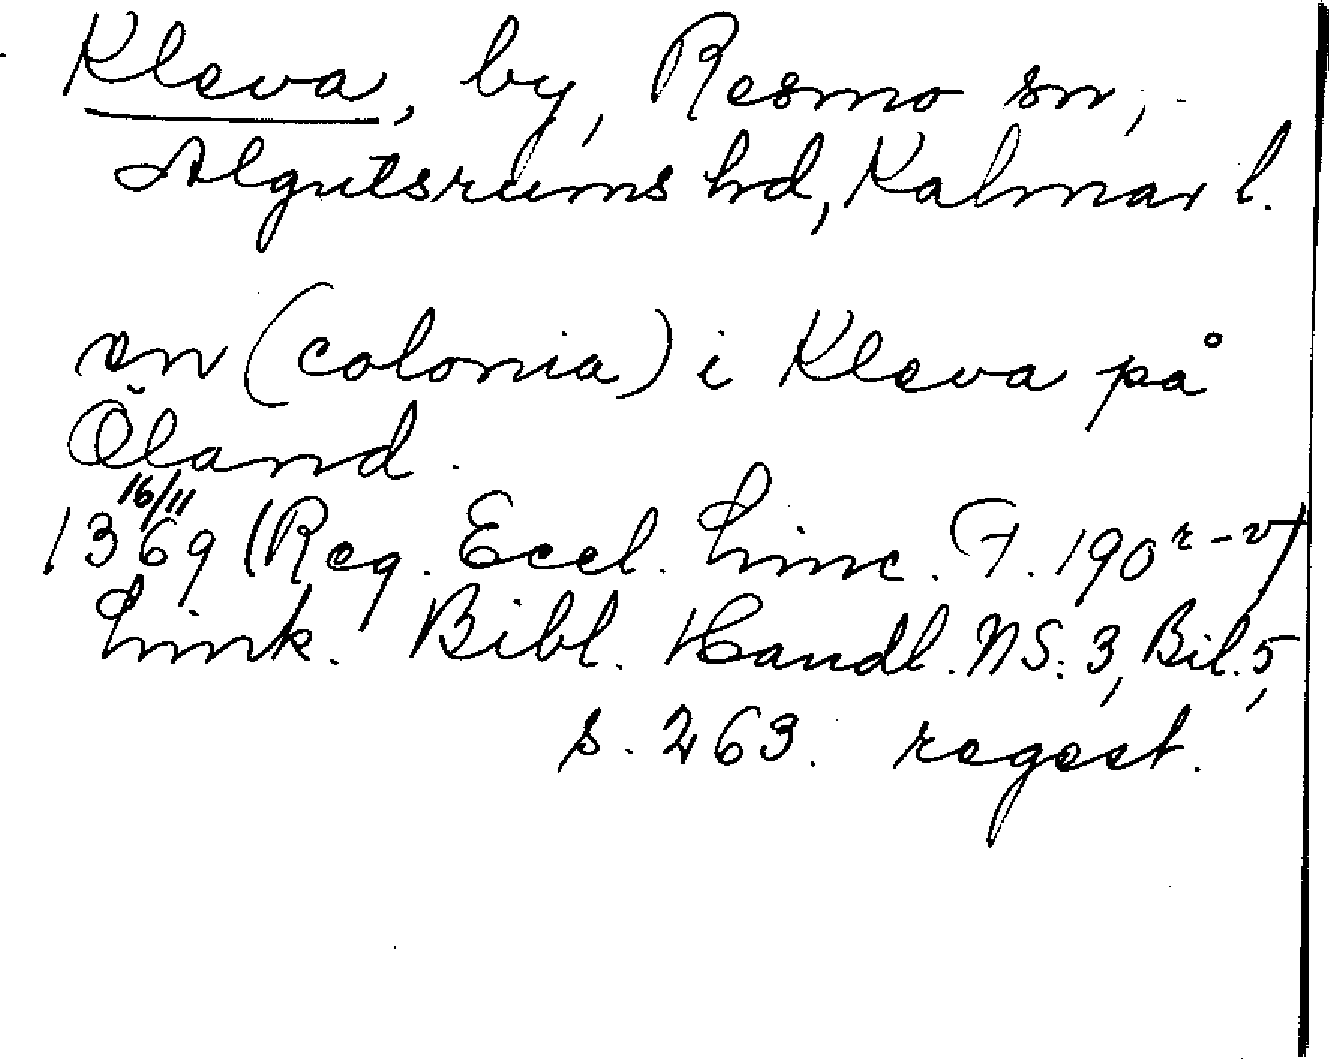 Kleva, by, Resmo sn,
Algutsrums hd, Kalmar l.
en (colonia) i Kleva på
Öland.
16/11
1369 (Reg. Eccl. Linc. F. 190 r-v)
Link. Bibl. Handl. NS. 3, Bil. 5,
s. 263. regest.